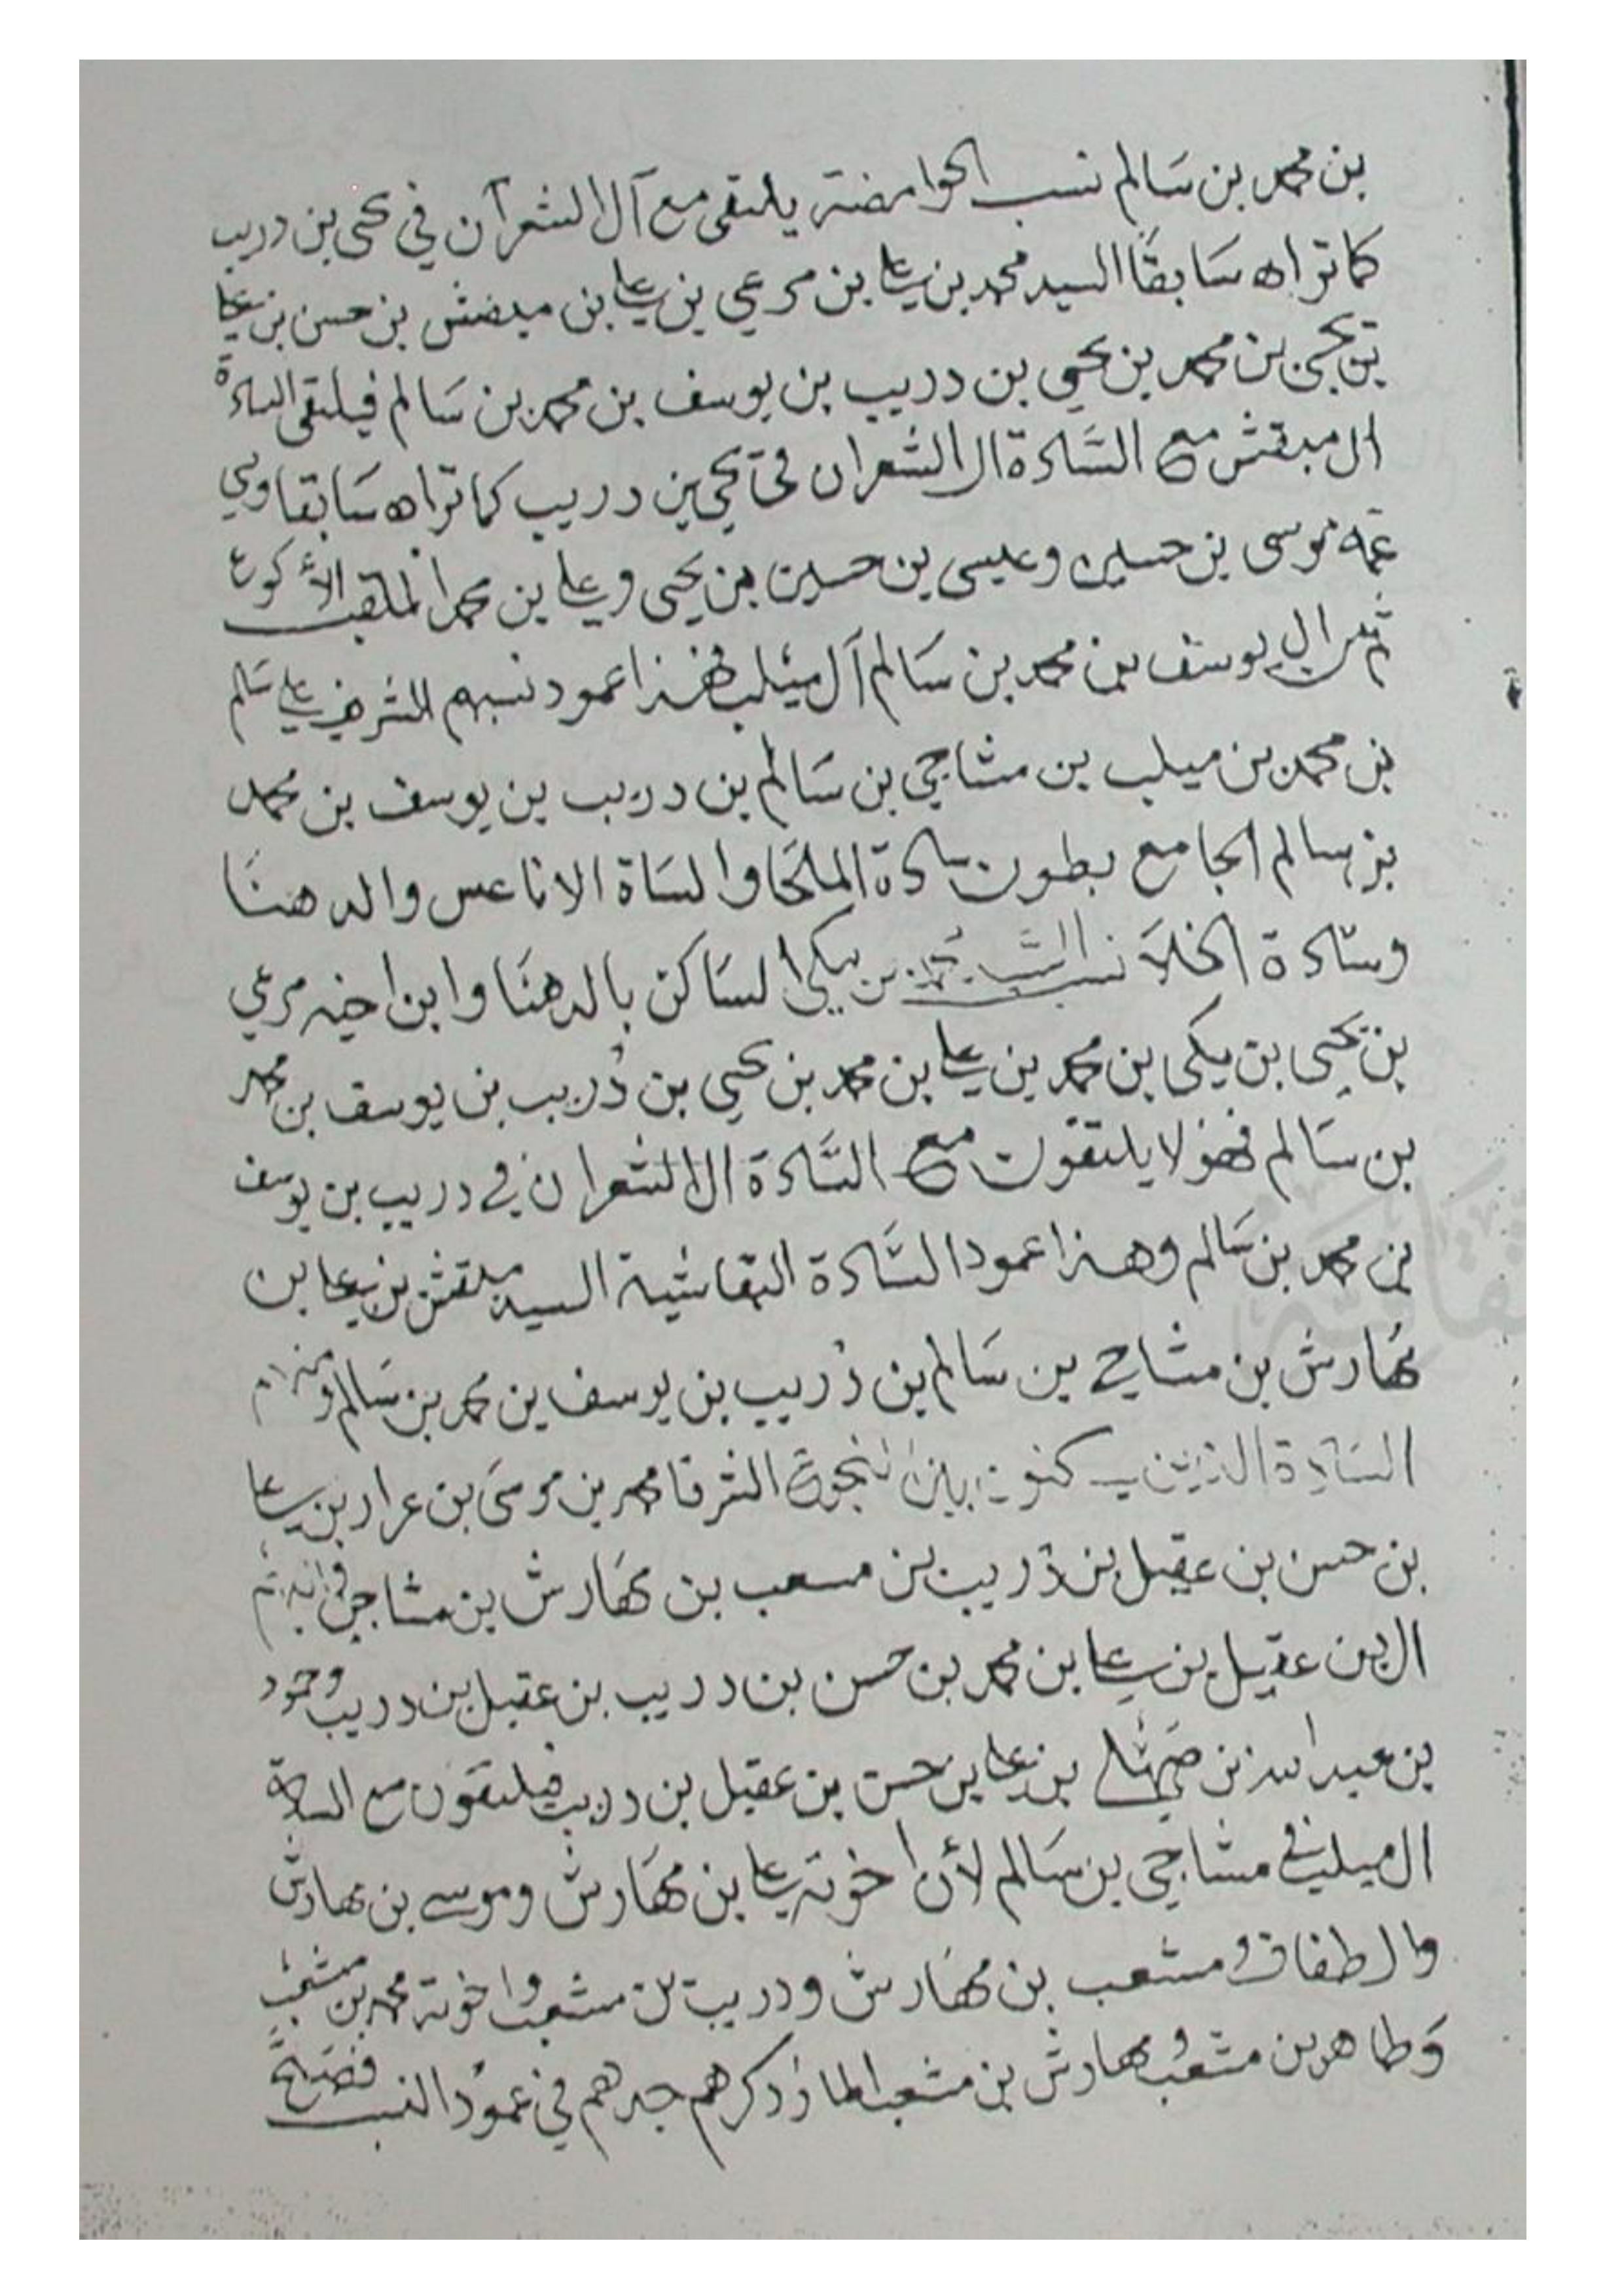 بن محمد بن سَالم نسب الحوامضة يلتقى مع آل الشعرآن في يحى بن دريب
كما تراه سَابقًا السيد محمد بن علي بن مرعي بن علي بن مبقش بن حسن بن علي
بن يحيى بن محمد بن يحيى بن دريب بن يوسف بن محمد بن سَالم فيلتقى السادة
ال مبقش مع السَّادة ال الشعران في يحي بن دريب كما تراه سَابقا وبني
عمه موسى بن حسين وعيسى بن حسين بن يحيى وعلي بن محمد الملقب الأكوع
ثم من ال يوسف بن محمد بن سَالم آل ميلب فهذا عمود نسبهم الشريف علي سَالم
بن محمد بن ميلب بن مشاجي بن سَالم بن دريب بن يوسف بن محمد
بن سالم الجامع بطون سادة الملحَا والسَاة الاناعس والدهنَا
وسَادة الخلا نسب بن يكي السَاكن بالدهنَا وابن اخيه مرعي
بن يحيى بن يكى بن محمد بن علي بن محمد بن يحيى بن دُريب بن يوسف بن محمد
بن سَالم فهؤلا يلتقون مع السَّادة ال الشعران في دريب بن يوسف
بن محمد بن سَالم وهذا عمود السَّادة البقاشية السيد مبقش بن علي بن
مهَارش بن مشاجي بن سَالم بن دُريب بن يوسف بن محمد بن سَالم
السَادة الذين يسكنون بين الشرفا محمد بن موسَى بن عرار بن علي
بن حسن بن عقيل بن دُريب بن مسعب بن مهَارش بن مشاجي
ال بن عقيل بن علي بن محمد بن حسن بن دريب بن عقيل بن دريب وحمود
بن عبدالله بن بن علي بن حسن بن عقيل بن دريب فيلتقون مع السادة
ال ميلب في مشاجي بن سَالم لأن اخوته علي بن مهَارش وموسى بن مهارش
وال طفاف ومشعب بن مهَارش ودريب بن مشعب واخوته محمد بن مشعب
وَطاهر بن مشعب مهارش بن مشعب ذكرهم جدهم في عمود النسب